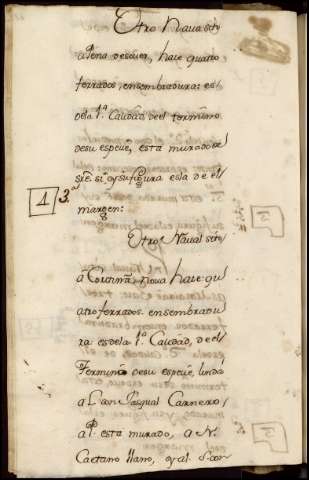 Otro Naval sito
a Pena desuer, hace quatro
ferrados, en sembradura: es
dela 1ª Caudad, de el termino
de su especie, esta murado so
sre. si oy su figura es la de el
margen:
1 3ª
Otro Naval sito
a Corcovna, Nova hace qu
atro ferrados. en sembradu
ra es de la 1ª Caudad, de el
Termino de su especie, linda
a L. Don Pasqual Carnero
a P. esta murado, a N.
Caetano llano, oy al S. con